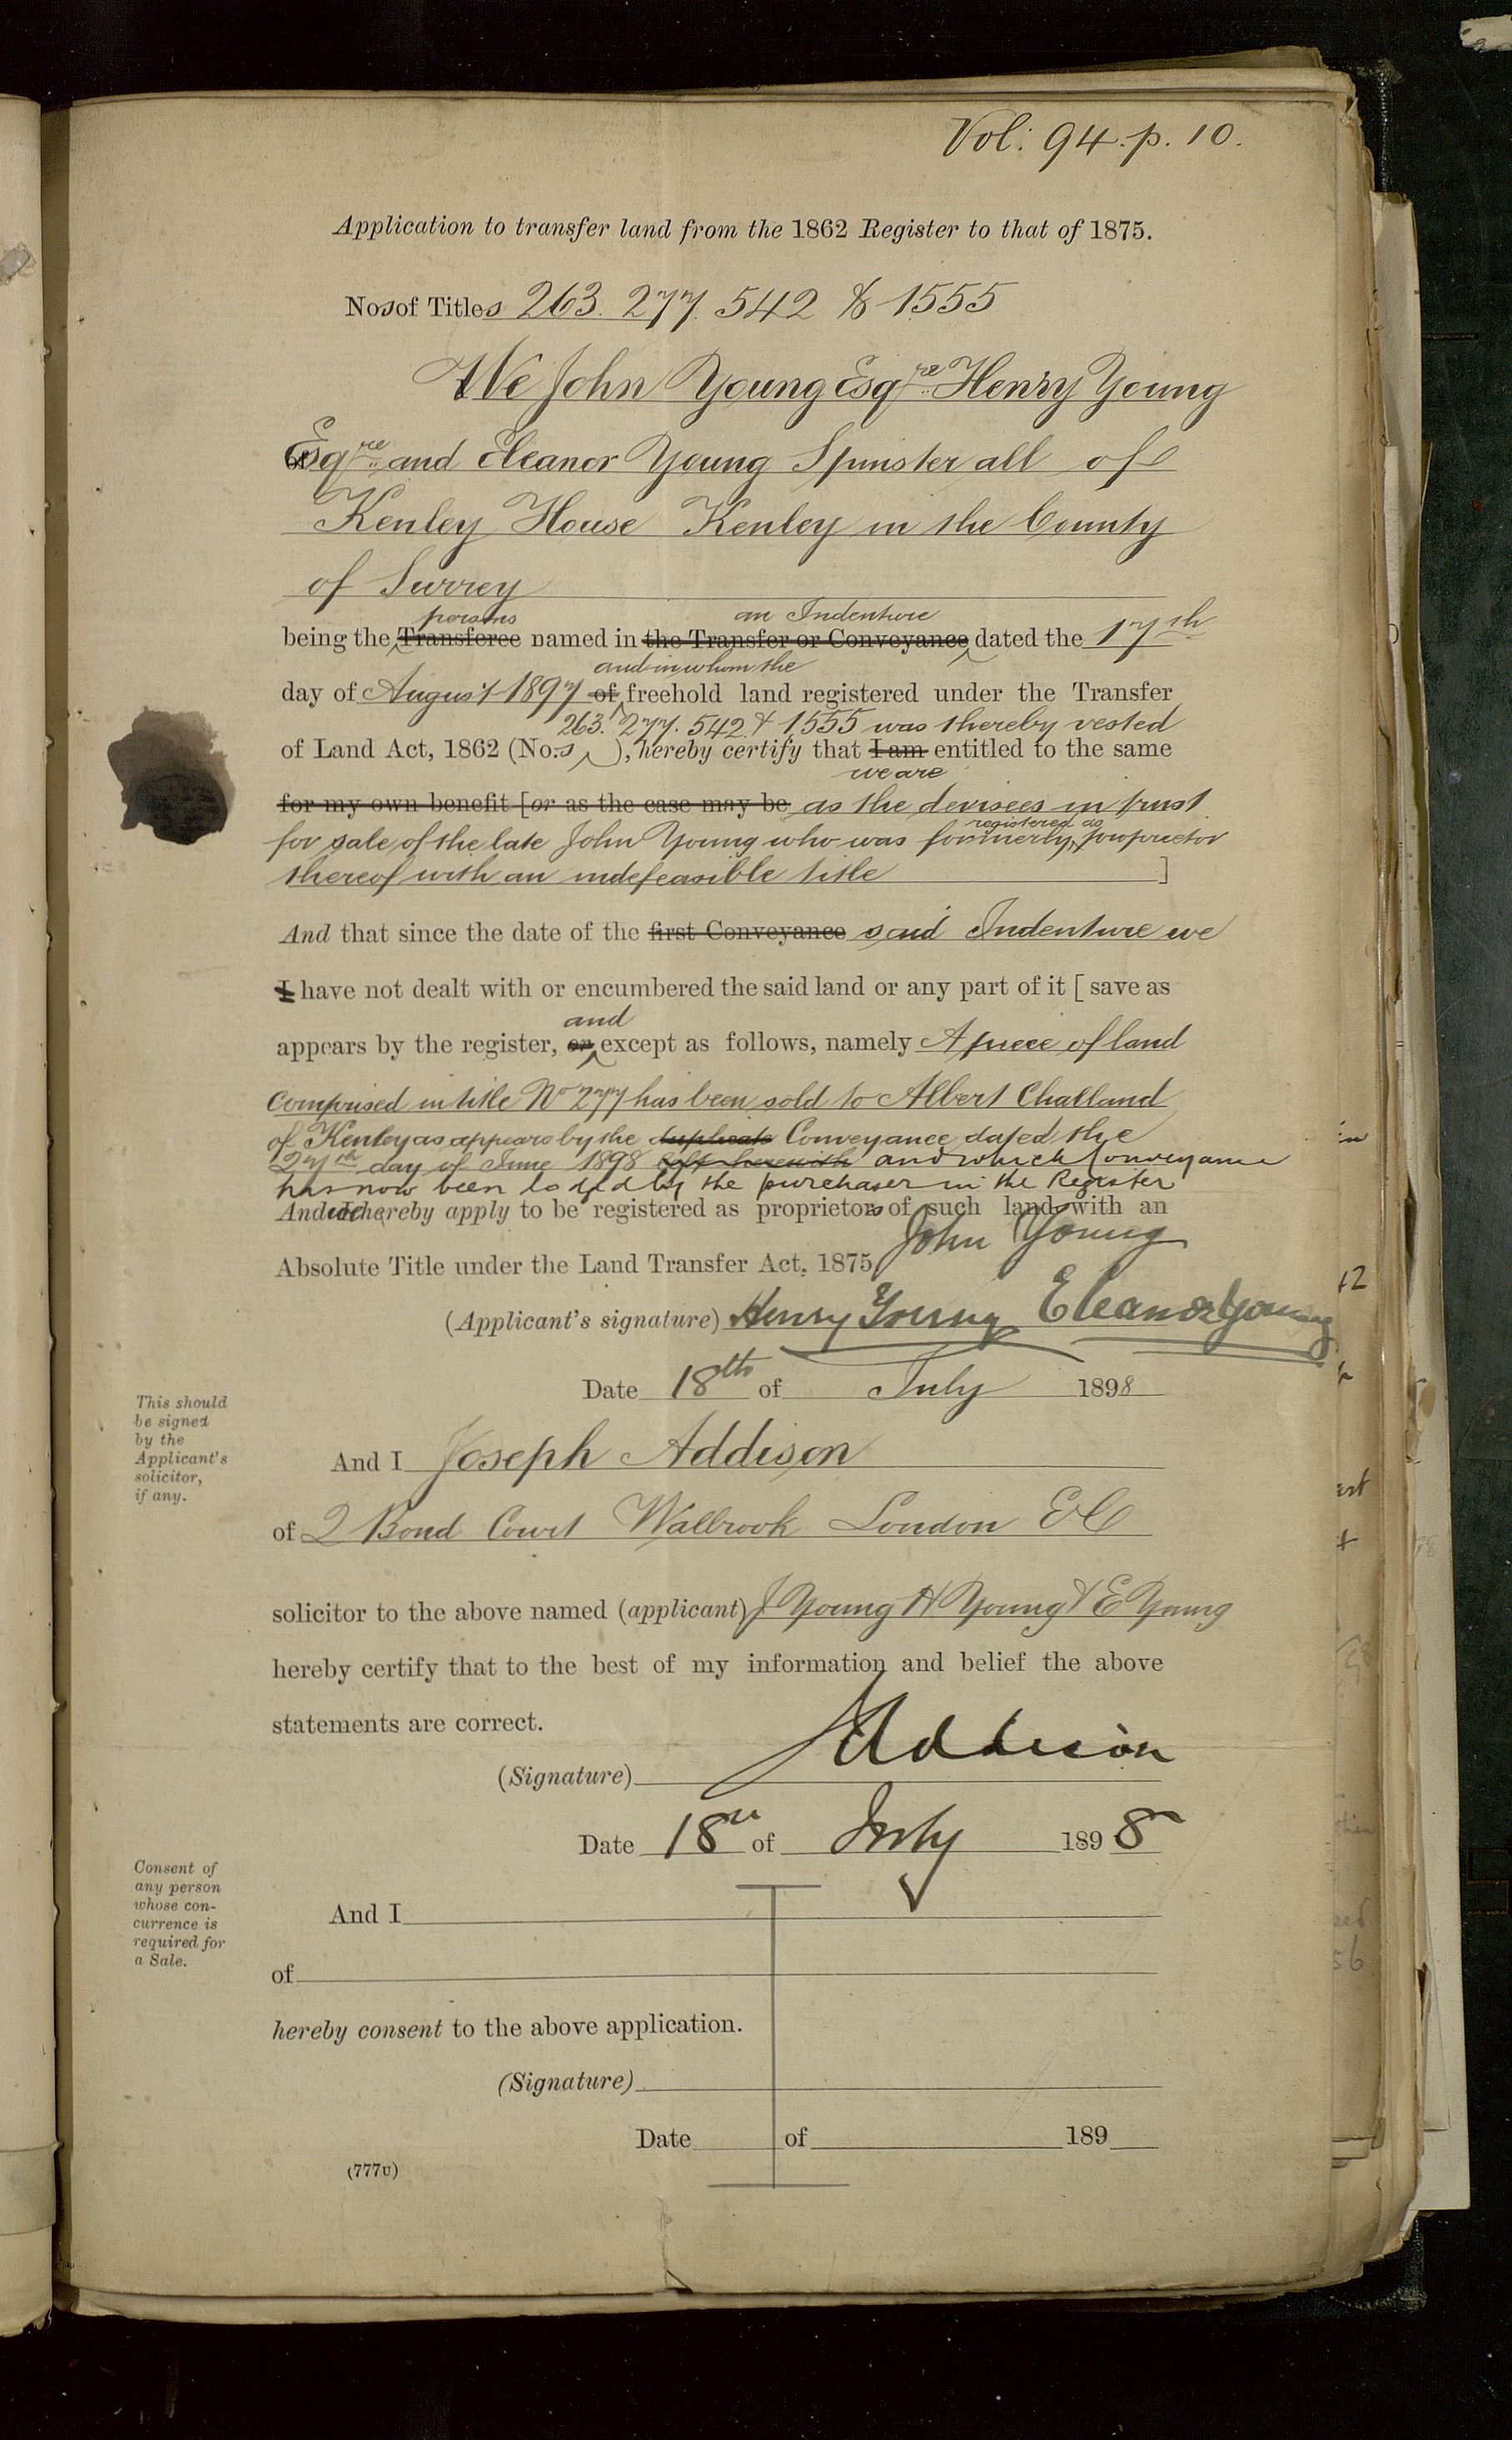 Vol: 94. p. 10.
Application to transfer land from the 1862 Register to that of 1875.
Nos of Titles 263. 277. 542 & 1555
We John Young Esqre Henry Young
Esqre and Eleanor Young Spinster all of
Kenley House Kenley in the County
of Surrey
persons an Indenture
being the Transferee named in the Transfer or Conveyance dated the 17th
and in whom the
day of August 1897 of freehold land registered under the Transfer
263. 277. 542 & 1555 was thereby vested
of Land Act, 1862 (No.s ), hereby certify that I am entitled to the same
we are
for my own benefit [or as the case may be as the devisees in trust
registered as
for sale of the late John Young who was formerly proprietor
thereof with an indefeasible title ]
And that since the date of the first Conveyance said Indenture we
I have not dealt with or encumbered the said land or any part of it [ save as
and
appears by the register, or except as follows, namely A piece of land
comprised in title No 277 has been sold to Albert Challand
of Kenley as appears by the duplicate Conveyance dated the
27th day of June 1898 left herewith and which Conveyance
has now been lodged by the purchaser in the Register
And we hereby apply to be registered as proprietors of such lands with an
John Young
Absolute Title under the Land Transfer Act, 1875
(Applicant's signature) Henry Young Eleanor Young
Date 18th of July 1898
This should
be signed
by the
Applicant's
solicitor,
if any.
And I Joseph Addison
of 2 Bond Court Walbrook London EC
solicitor to the above named (applicant) J Young H Young & E Young
hereby certify that to the best of my information and belief the above
statements are correct.
(Signature) J Addison
Date 18th of July 1898
Consent of
any person
whose con-
currence is
required for
a Sale.
And I
of
hereby consent to the above application.
(Signature)
Date of 189
(777U)